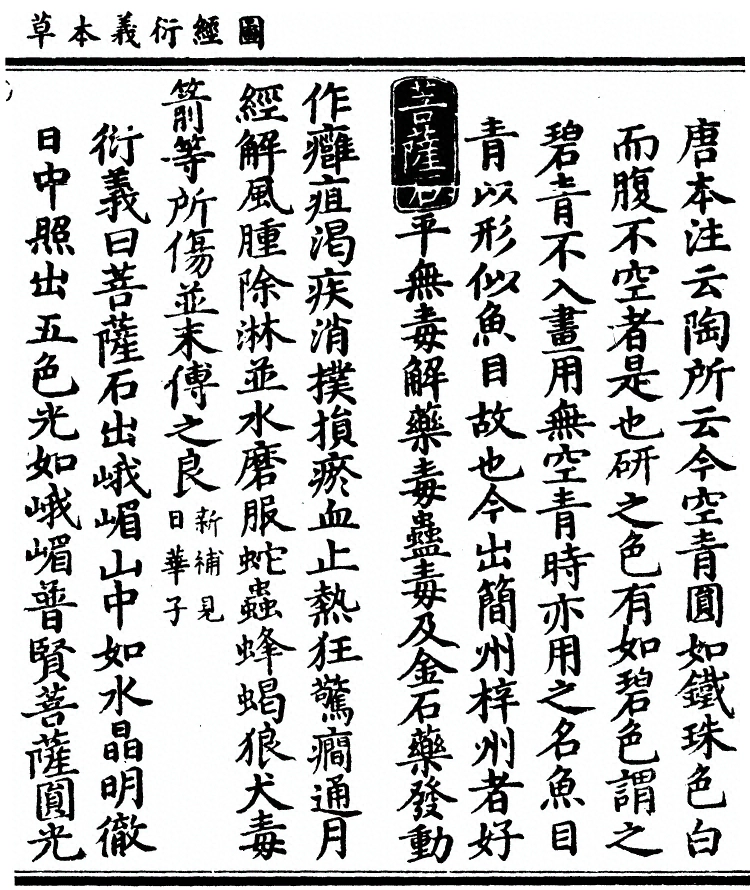 圖經衍義本草
唐本注云陶所云今空青圓如鐵珠色白
而腹不空者是也研之色有如碧色謂之
碧青不入畫用無空青時亦用之名魚目
青以形似魚目故也今出簡州梓州者好
菩薩石平無毒解藥毒蠱毒及金石藥發動
作癰疽渴疾消撲損瘀血止熱狂驚癇通月
經解風腫除淋並水磨服蛇蟲蜂蝎狼犬毒
箭等所傷並末傅之良新補見日華子
衍義曰菩薩石出峨嵋山中如水晶明徹
日中照出五色光如峨嵋普賢菩薩圓光